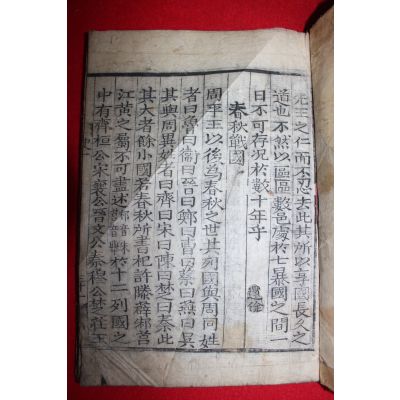 先王之仁而不忍去此其所以享國長久之
道也不然以區區數邑處於七暴國之間一
日不可存况於數十年乎
春秋戰國
周平王以後爲春秋之世其列國與周同姓
者曰魯曰衞曰晉曰鄭曰曹曰蔡曰燕曰吳
其與周異姓者曰齊曰宋曰陳曰楚曰秦此
其大者餘小國若春秋所書杞許滕薛邾莒
江黃之屬不可盡述 於十二列國之
中有齊桓公宋襄公晉文公秦穆公楚莊王